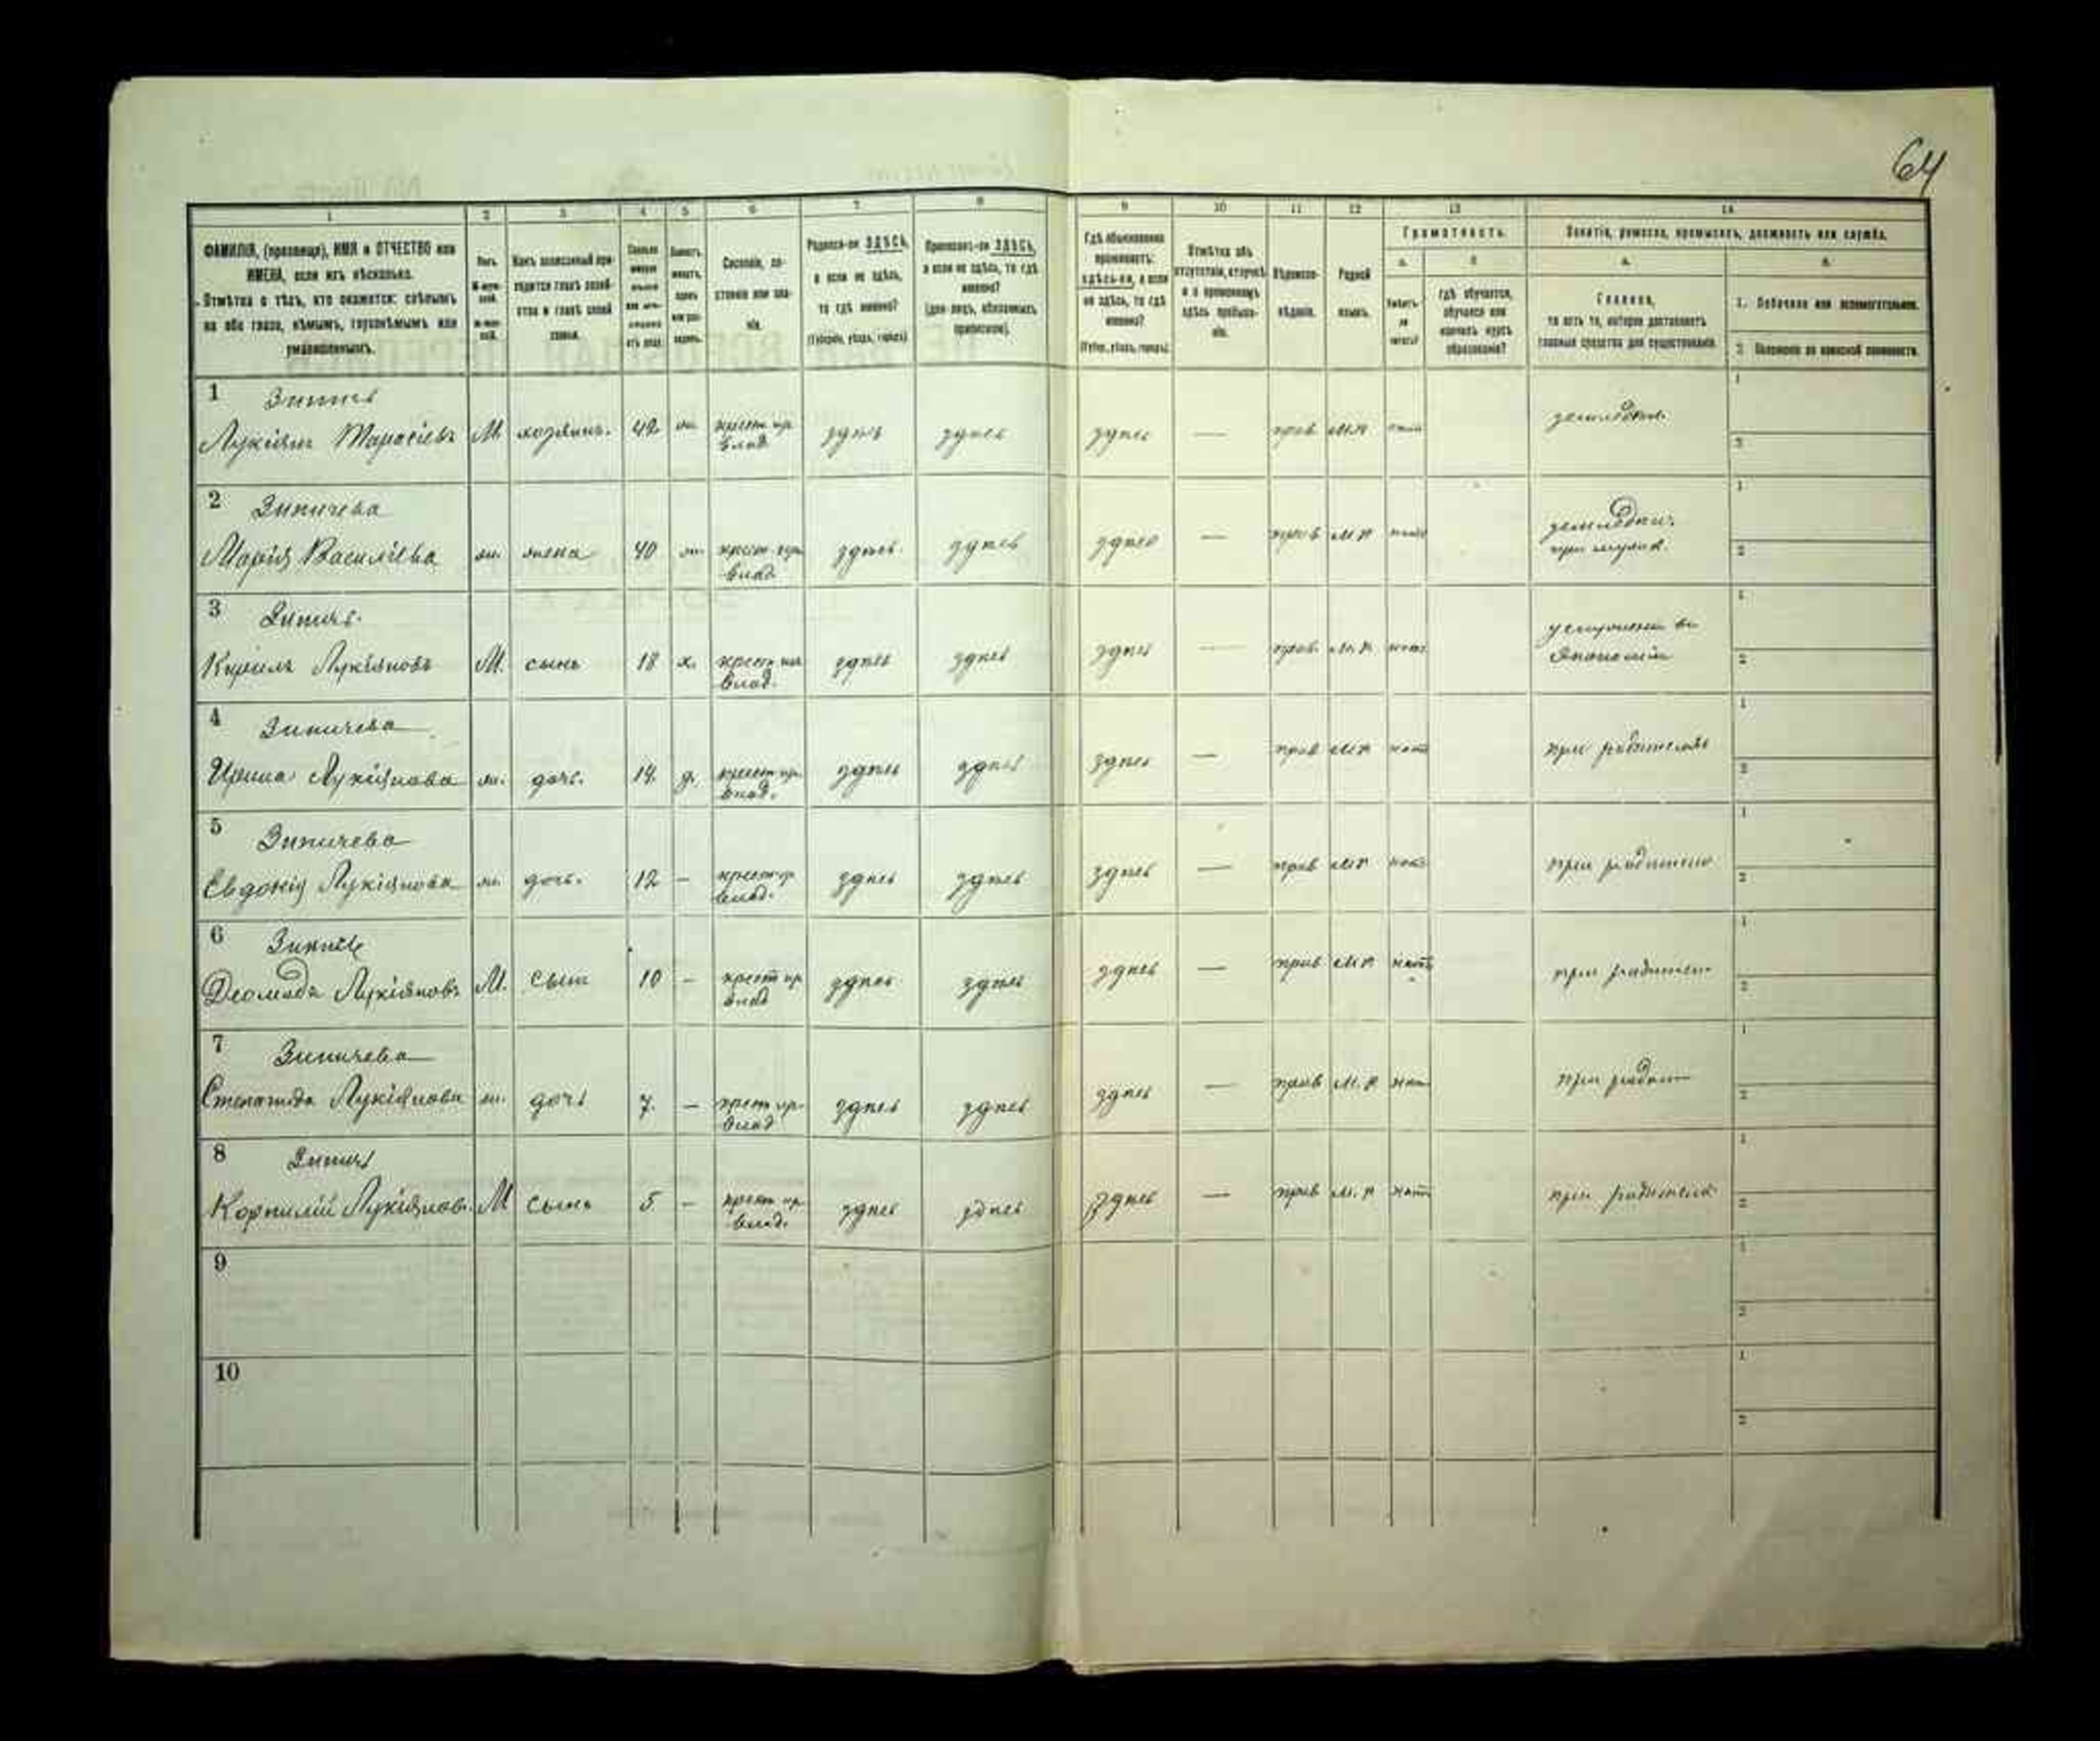 64
1 2 3 4 5 6 7 8 9 10 11 12 13 14
ФАМИЛІЯ, (прозвище), ИМЯ и ОТЧЕСТВО или
ИМЕНА, если ихъ нѣсколько.
Отмѣтка о тѣхъ, кто окажется: слѣпымъ
на оба глаза, нѣмымъ, глухонѣмымъ или
умалишеннымъ.
Полъ.
М-муж-
ской.
Ж-жен-
скій.
Какъ записанный при-
ходится главѣ хозяй-
ства и главѣ своей
семьи.
Сословіе, со-
стояніе или зва-
ніе.
Родился-ли ЗДѢСЬ,
а если не здѣсь,
то гдѣ именно?
(Губернія, уѣздъ, городъ)
Приписанъ-ли ЗДѢСЬ,
а если не здѣсь, то гдѣ
именно?
(для лицъ, обязанныхъ
припиской).
Гдѣ обыкновенно
проживаетъ:
здѣсь-ли, а если
не здѣсь, то гдѣ
именно?
(Губер., уѣздъ, городъ)
Отмѣтка объ
отсутствіи, отлучкѣ
и о временномъ
здѣсь пребыва-
ніи.
Вѣроиспо-
вѣданіе.
Родной
языкъ.
Грамотность.
а. б.
Умѣетъ
ли
читать?
Гдѣ обучается,
обучался или
кончилъ курсъ
образованія?
Занятіе, ремесло, промыселъ, должность или служба.
а.
Главное,
то есть то, которое доставляетъ
главныя средства для существованія.
б.
1. Побочное или вспомогательное.
2. Положеніе по воинской повинности.
1 Зипичъ
Лукіянъ Тарасіевъ М хозяинъ. 42 ж. крест. вр. влад. здѣсь здѣсь здѣсь — прав М.Р. нѣтъ 1 2
2 Зипичева
Марія Василіева ж. жена 40 ж. влад. здѣсь здѣсь здѣсь — прав М.Р. нѣтъ 1 2
3 Зипичъ
Кирилъ Лукіяновъ М. сынъ 18 х. влад. здѣсь здѣсь здѣсь — прав. М.Р. нѣтъ 1 2
4 Зипичева
Ирина Лукіянова ж. дочь. 14. д. влад. здѣсь здѣсь здѣсь — прав М.Р. нѣтъ при родителяхъ 1 2
5 Зипичева
Евдокія Лукіянова ж. дочь. 12 — влад. здѣсь здѣсь здѣсь — прав М.Р. нѣтъ при родителя 1 2
6 Зипичъ
Діомидъ Лукіяновъ М. сынъ 10 — влад здѣсь здѣсь здѣсь — прав М.Р. нѣтъ при родител 1 2
7 Зипичева
Степанида Лукіянова ж. дочь 7. — влад здѣсь здѣсь здѣсь — прав М.Р. нѣтъ при родит 1 2
8 Зипичъ
Корнилій Лукіянов. М сынъ 5 — влад. здѣсь здѣсь здѣсь — прав М.Р. нѣтъ при родителя 1 2
9 1 2
10 1 2